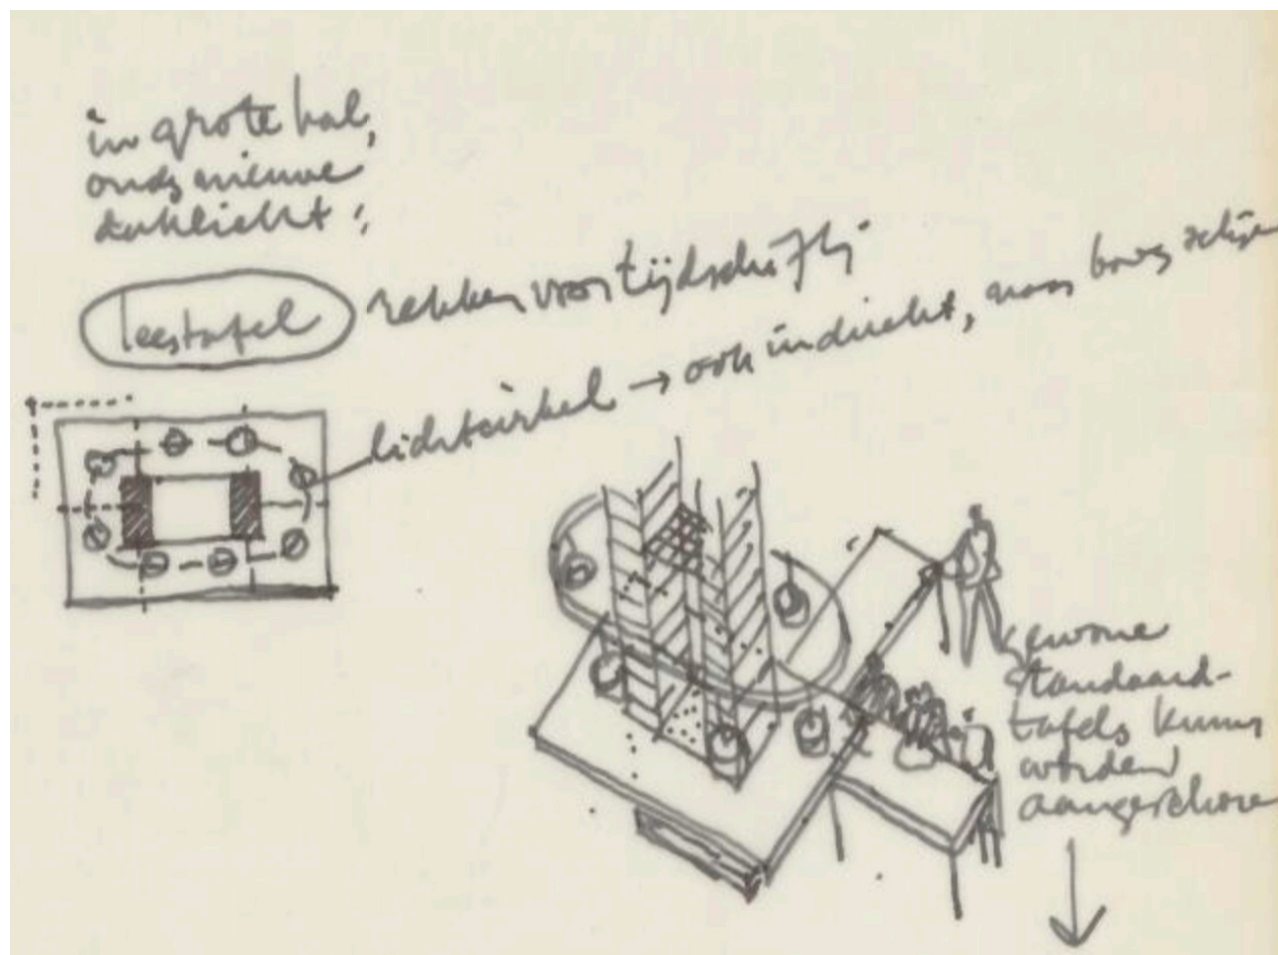 in grote hal,
onder nieuwe
daklicht:
leestafel rekken voor tijdschriften
lichtcirkel → ook indirekt, naar boven
gewone
standaard-
tafels kunnen
worden
aangeschoven